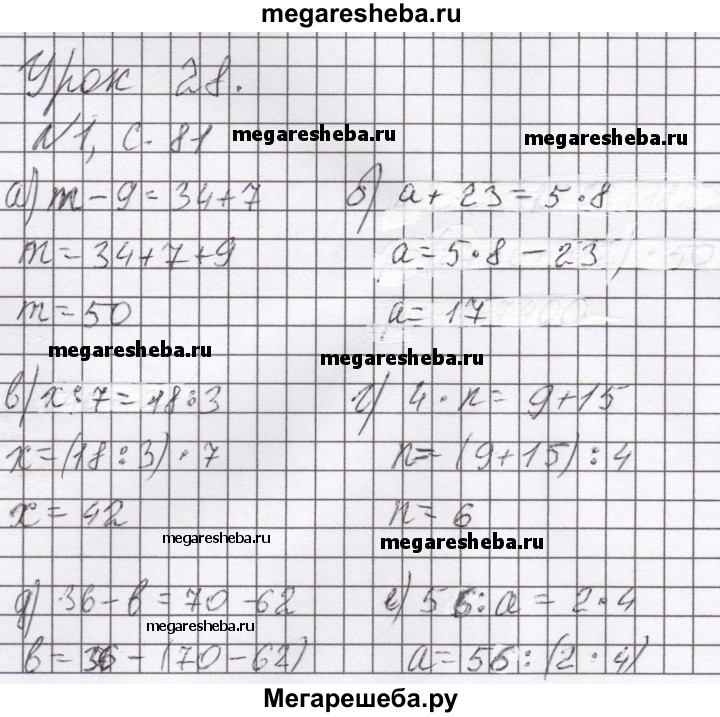 megaresheba.ru
Урок 28.
№1, с. 81 megaresheba.ru megaresheba.ru
а) m - 9 = 34 + 7 б) a + 23 = 5 · 8
m = 34 + 7 + 9 a = 5 · 8 - 23
m = 50 a = 17
megaresheba.ru megaresheba.ru
в) x : 7 = 18 : 3 г) 4 · n = 9 + 15
x = (18 : 3) · 7 n = (9 + 15) : 4
x = 42 n = 6
megaresheba.ru megaresheba.ru
д) 36 - b = 70 - 62 е) 56 : a = 2 · 4
megaresheba.ru
b = 36 - (70 - 62) a = 56 : (2 · 4)
Мегарешеба.ру